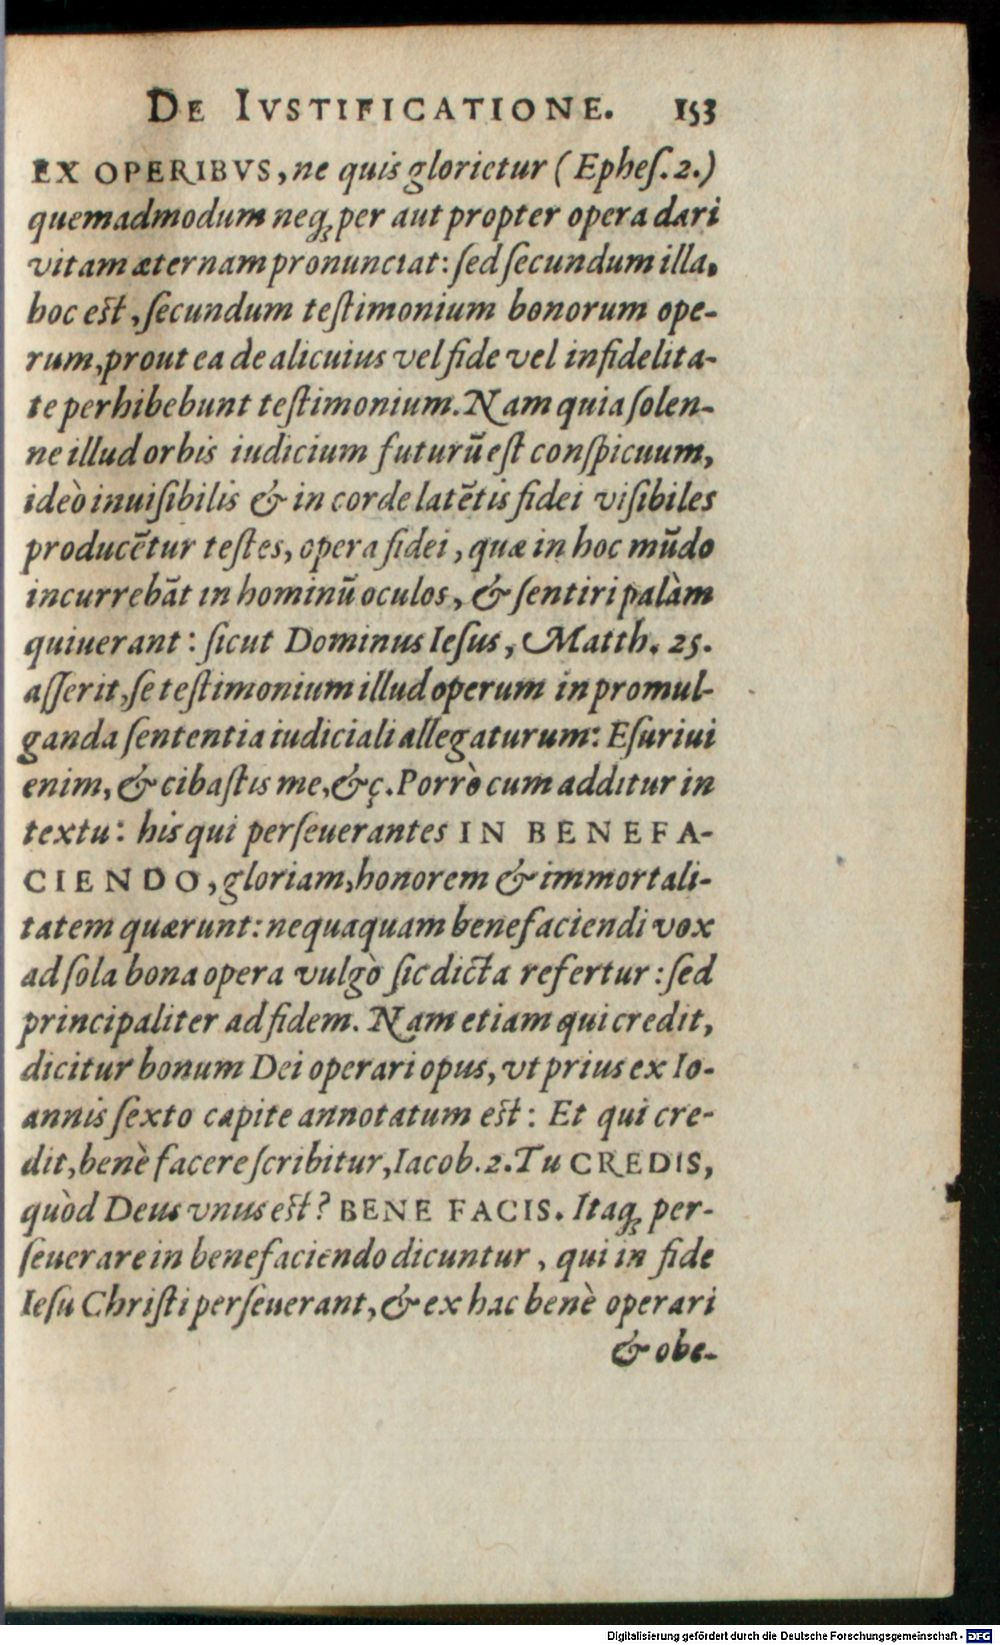 DE IVSTIFICATIONE. 153
EX OPERIBVS, ne quis glorietur (Epheſ. 2.)
quemadmodum neqꝫ per aut propter opera dari
vitam æternam pronunciat: ſed ſecundum illa,
hoc eſt, ſecundum teſtimonium bonorum ope-
rum, prout ea de alicuius vel fide vel infidelita-
te perhibebunt teſtimonium. Nam quia ſolen-
ne illud orbis iudicium futurū eſt conſpicuum,
ideò inuiſibilis & in corde latētis fidei viſibiles
producētur teſtes, opera fidei, quæ in hoc mūdo
incurrebāt in hominū oculos, & ſentiri palàm
quiuerant: ſicut Dominus Ieſus, Matth. 25.
aſſerit, ſe teſtimonium illud operum in promul-
ganda ſententia iudiciali allegaturum: Eſuriui
enim, & cibaſtis me, &ç. Porrò cum additur in
textu: his qui perſeuerantes IN BENEFA-
CIENDO, gloriam, honorem & immortali-
tatem quærunt: nequaquam benefaciendi vox
ad ſola bona opera vulgò ſic dicta refertur: ſed
principaliter ad fidem. Nam etiam qui credit,
dicitur bonum Dei operari opus, vt prius ex Io-
annis ſexto capite annotatum eſt: Et qui cre-
dit, benè facere ſcribitur, Iacob. 2. Tu CREDIS,
quòd Deus vnus eſt? BENE FACIS. Itaqꝫ per-
ſeuerare in benefaciendo dicuntur, qui in fide
Ieſu Chriſti perſeuerant, & ex hac benè operari
& obe-
Digitalisierung gefördert durch die Deutsche Forschungsgemeinschaft - DFG